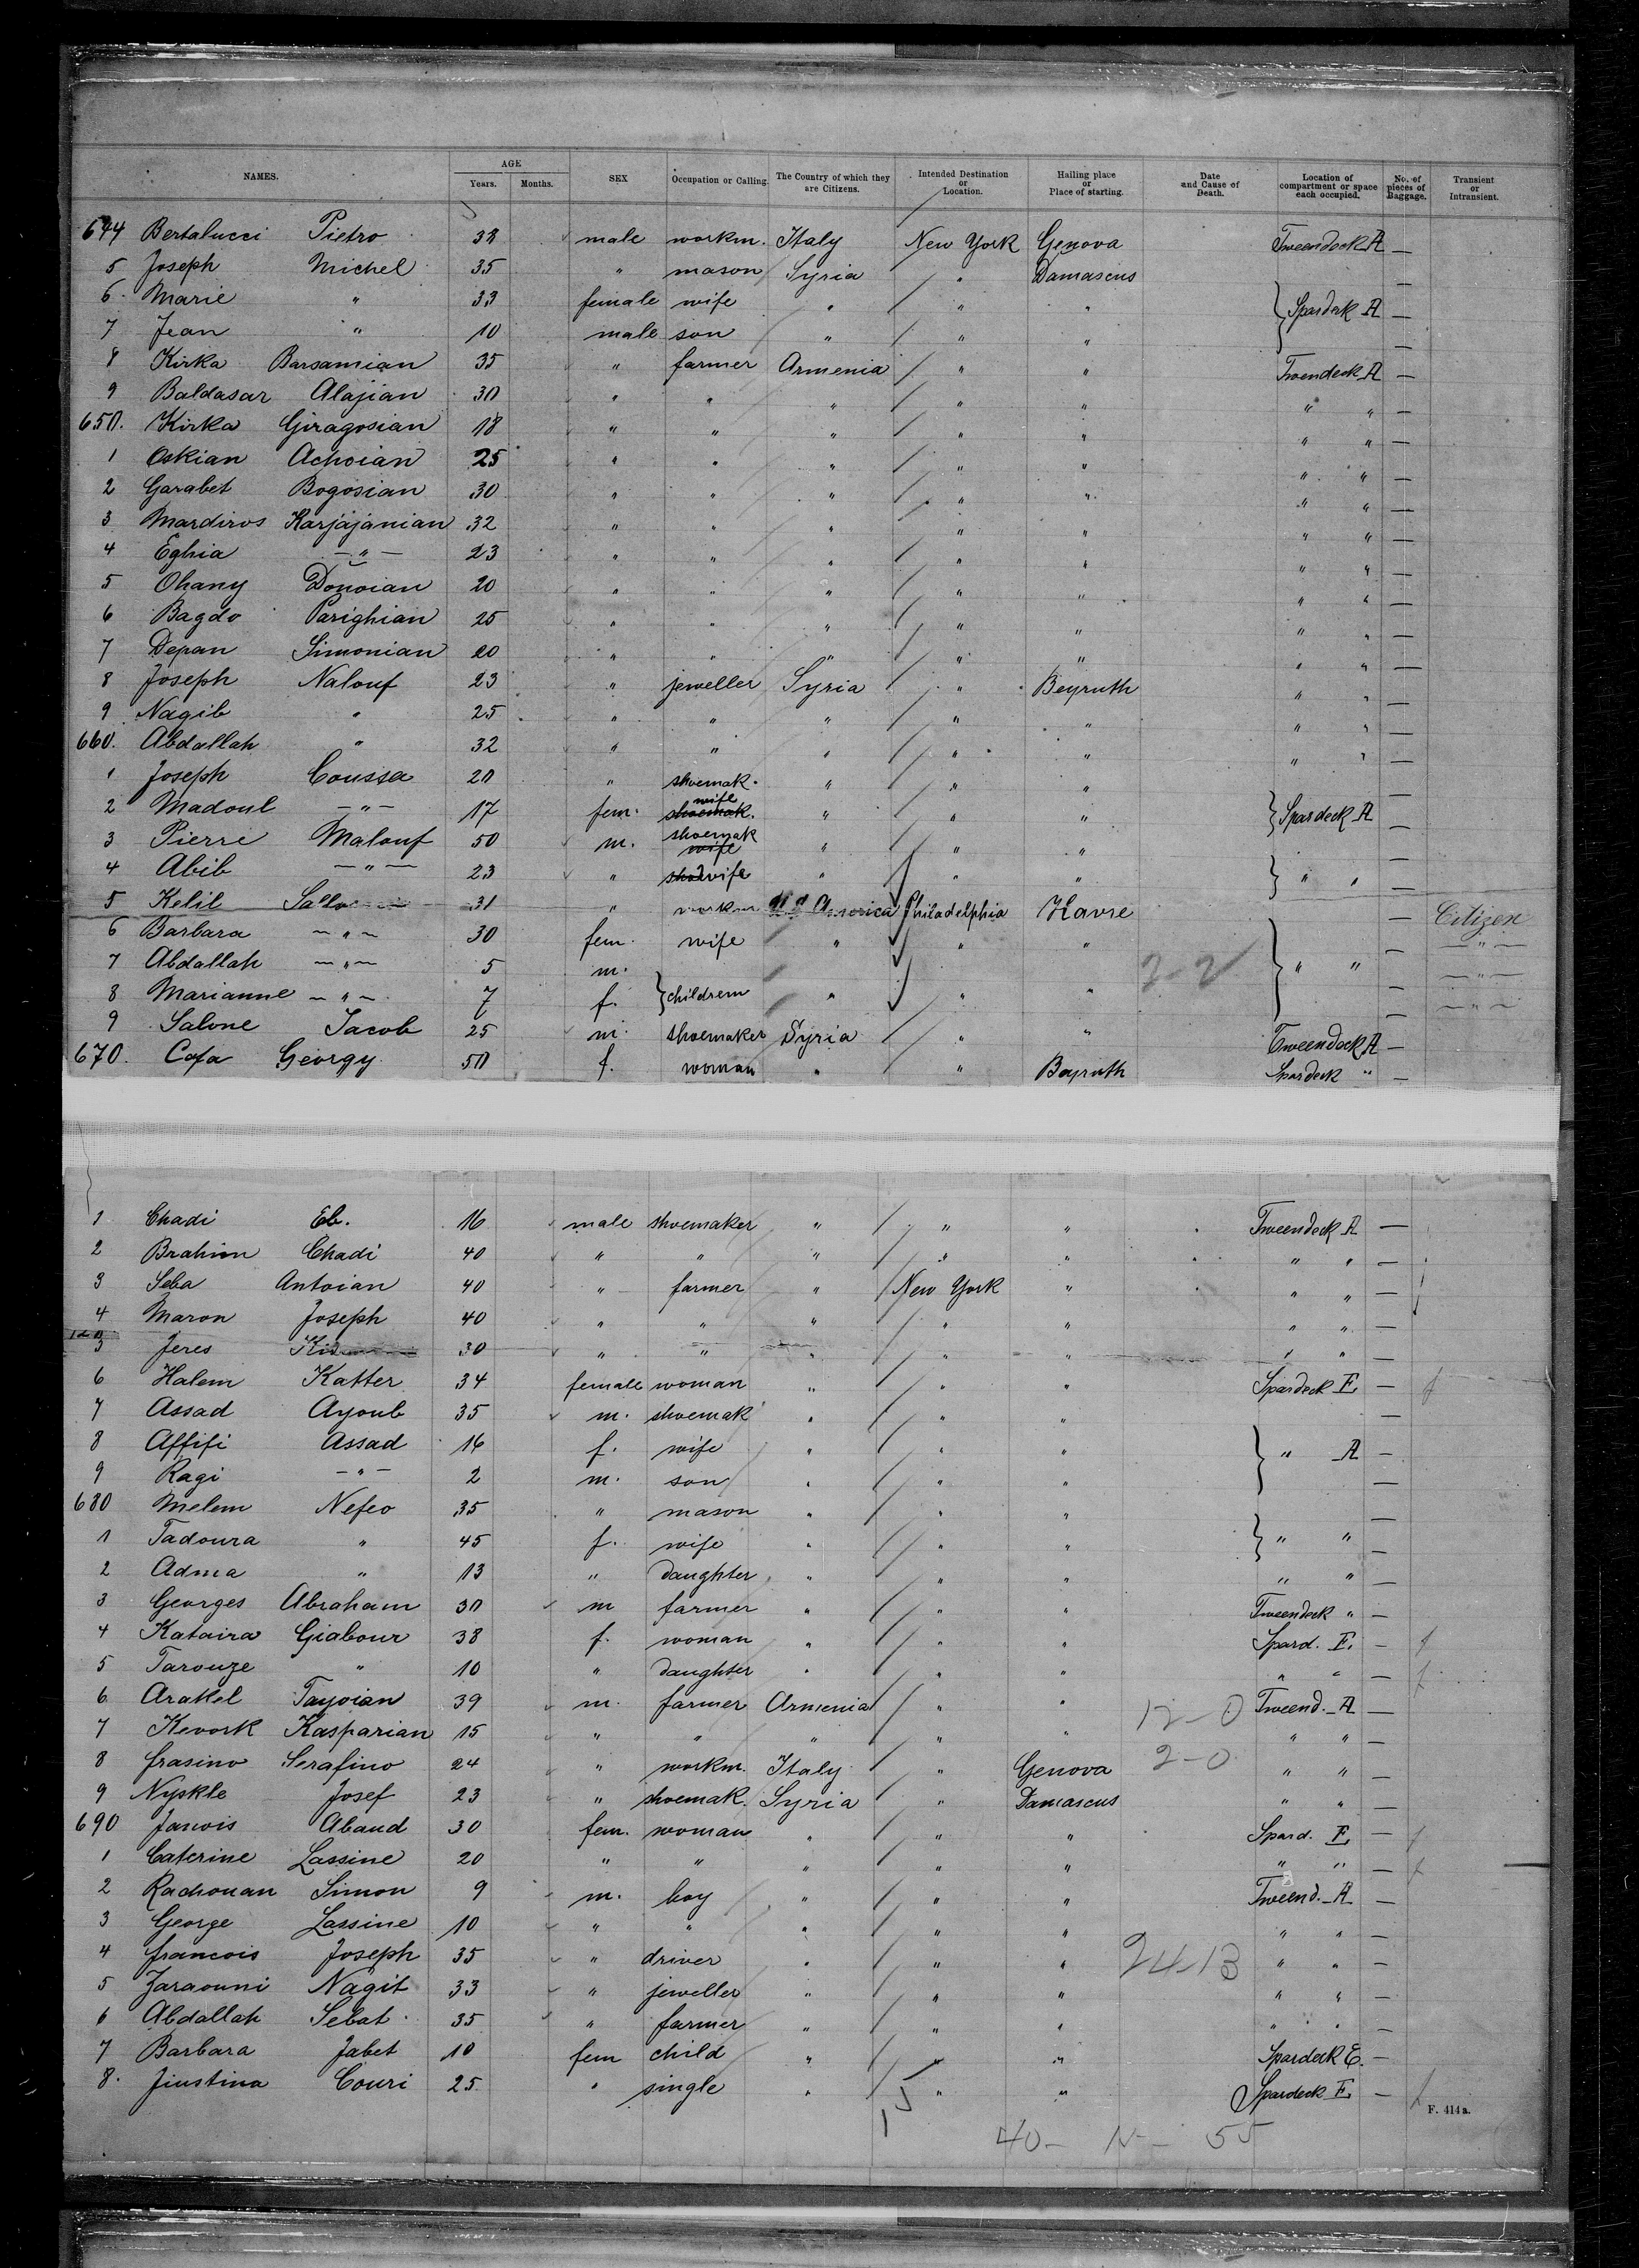 NAMES. AGE Years. Months. SEX Occupation or Calling. The Country of which they are Citizens. Intended Destination or Location. Hailing place or Place of starting. Date and Cause of Death. Location of compartment or space each occupied. No. of pieces of Baggage. Transient or Intransient.
644 Bertalucci Pietro 38 male workm. Italy New York Genova Tweendeck A —
5 Joseph Michel 35 " mason Syria " Damascus —
6 Marie " 33 female wife " " " } Spardeck A —
7 Jean " 10 male son " " " —
8 Kirka Barsamian 35 " farmer Armenia " " Tweendeck A —
9 Baldasar Alajian 30 " " " " " " " —
650. Kirka Giragosian 18 " " " " " " " —
1 Oskian Achoian 25 " " " " " " " —
2 Garabet Bogosian 30 " " " " " " " —
3 Mardiros Karjajanian 32 " " " " " " " —
4 Eghia — " — 23 " " " " " " " —
5 Ohany Donoian 20 " " " " " " " —
6 Bagdo Parighian 25 " " " " " " " —
7 Depan Simonian 20 " " " " " " " —
8 Joseph Nalouf 23 " jeweller Syria " Beyruth " " —
9 Nagib " 25 " " " " " " " —
660. Abdallah " 32 " " " " " " " —
1 Joseph Coussa 20 " shoemak. " " " —
2 Madoul — " — 17 fem. shoemak. wife " " " } Spardeck A —
3 Pierre Malouf 50 m. shoemak wife " " " —
4 Abib — " — 23 " wife " " " } " " —
5 Kelil 31 " workm U.S. America Philadelphia Havre — Citizen
6 Barbara — " — 30 fem. wife " " " — — " —
7 Abdallah — " — 5 m. 2-2 } " " — — " —
8 Marianne — " — 7 f. } children " " " — — " —
9 Salone Jacob 25 m. shoemaker Syria " " Tweendeck A —
670. Cafa Georgy 50 f. woman " " Beyruth Spardeck " —
1 Chadi Eb. 16 male shoemaker " " " Tweendeck A —
2 Brahim Chadi 40 " " " " " " " —
3 Seba Antoian 40 " farmer " New York " " " —
4 Maron Joseph 40 " " " " " " " —
5 Jeres 30 " " " " " " " —
6 Halem Katter 34 female woman " " " Spardeck E —
7 Assad Ayoub 35 m. shoemak " " " —
8 Affifi Assad 16 f. wife " " " } " A —
9 Ragi — " — 2 m. son " " " —
680 Melem Nefeo 35 " mason " " " —
1 Tadoura " 45 f. wife " " " } " " —
2 Adma " 13 " daughter " " " " " —
3 Georges Abraham 30 m farmer " " " Tweendeck " —
4 Kataira Giabour 38 f. woman " " " Spard. E. —
5 Tarouze " 10 " daughter " " " " " —
6 Arakel Tayoian 39 m. farmer Armenia " " 12-0 Tweend. A —
7 Kevork Kasparian 15 " " " " " " " —
8 frasino Serafino 24 " workm. Italy " Genova 2-0 " " —
9 Nyskle Josef 23 " shoemak. Syria " Damascus " " —
690 Janvois Abaud 30 fem. woman " " " Spard. E. —
1 Caterine Lassine 20 " " " " " " " —
2 Rachouan Simon 9 m. boy " " " Tweend. A —
3 George Lassine 10 " " " " " " " —
4 francois Joseph 35 " driver " " " 24-13 " " —
5 Zaraouni Nagit 33 " jeweller " " " " " —
6 Abdallah Sebat 35 " farmer " " " " " —
7 Barbara Jabet 10 fem child " " " Spardeck E. —
8. Jiustina Couri 25 " single " " " Spardeck E. —
F. 414 a.
15
40 - N - 55